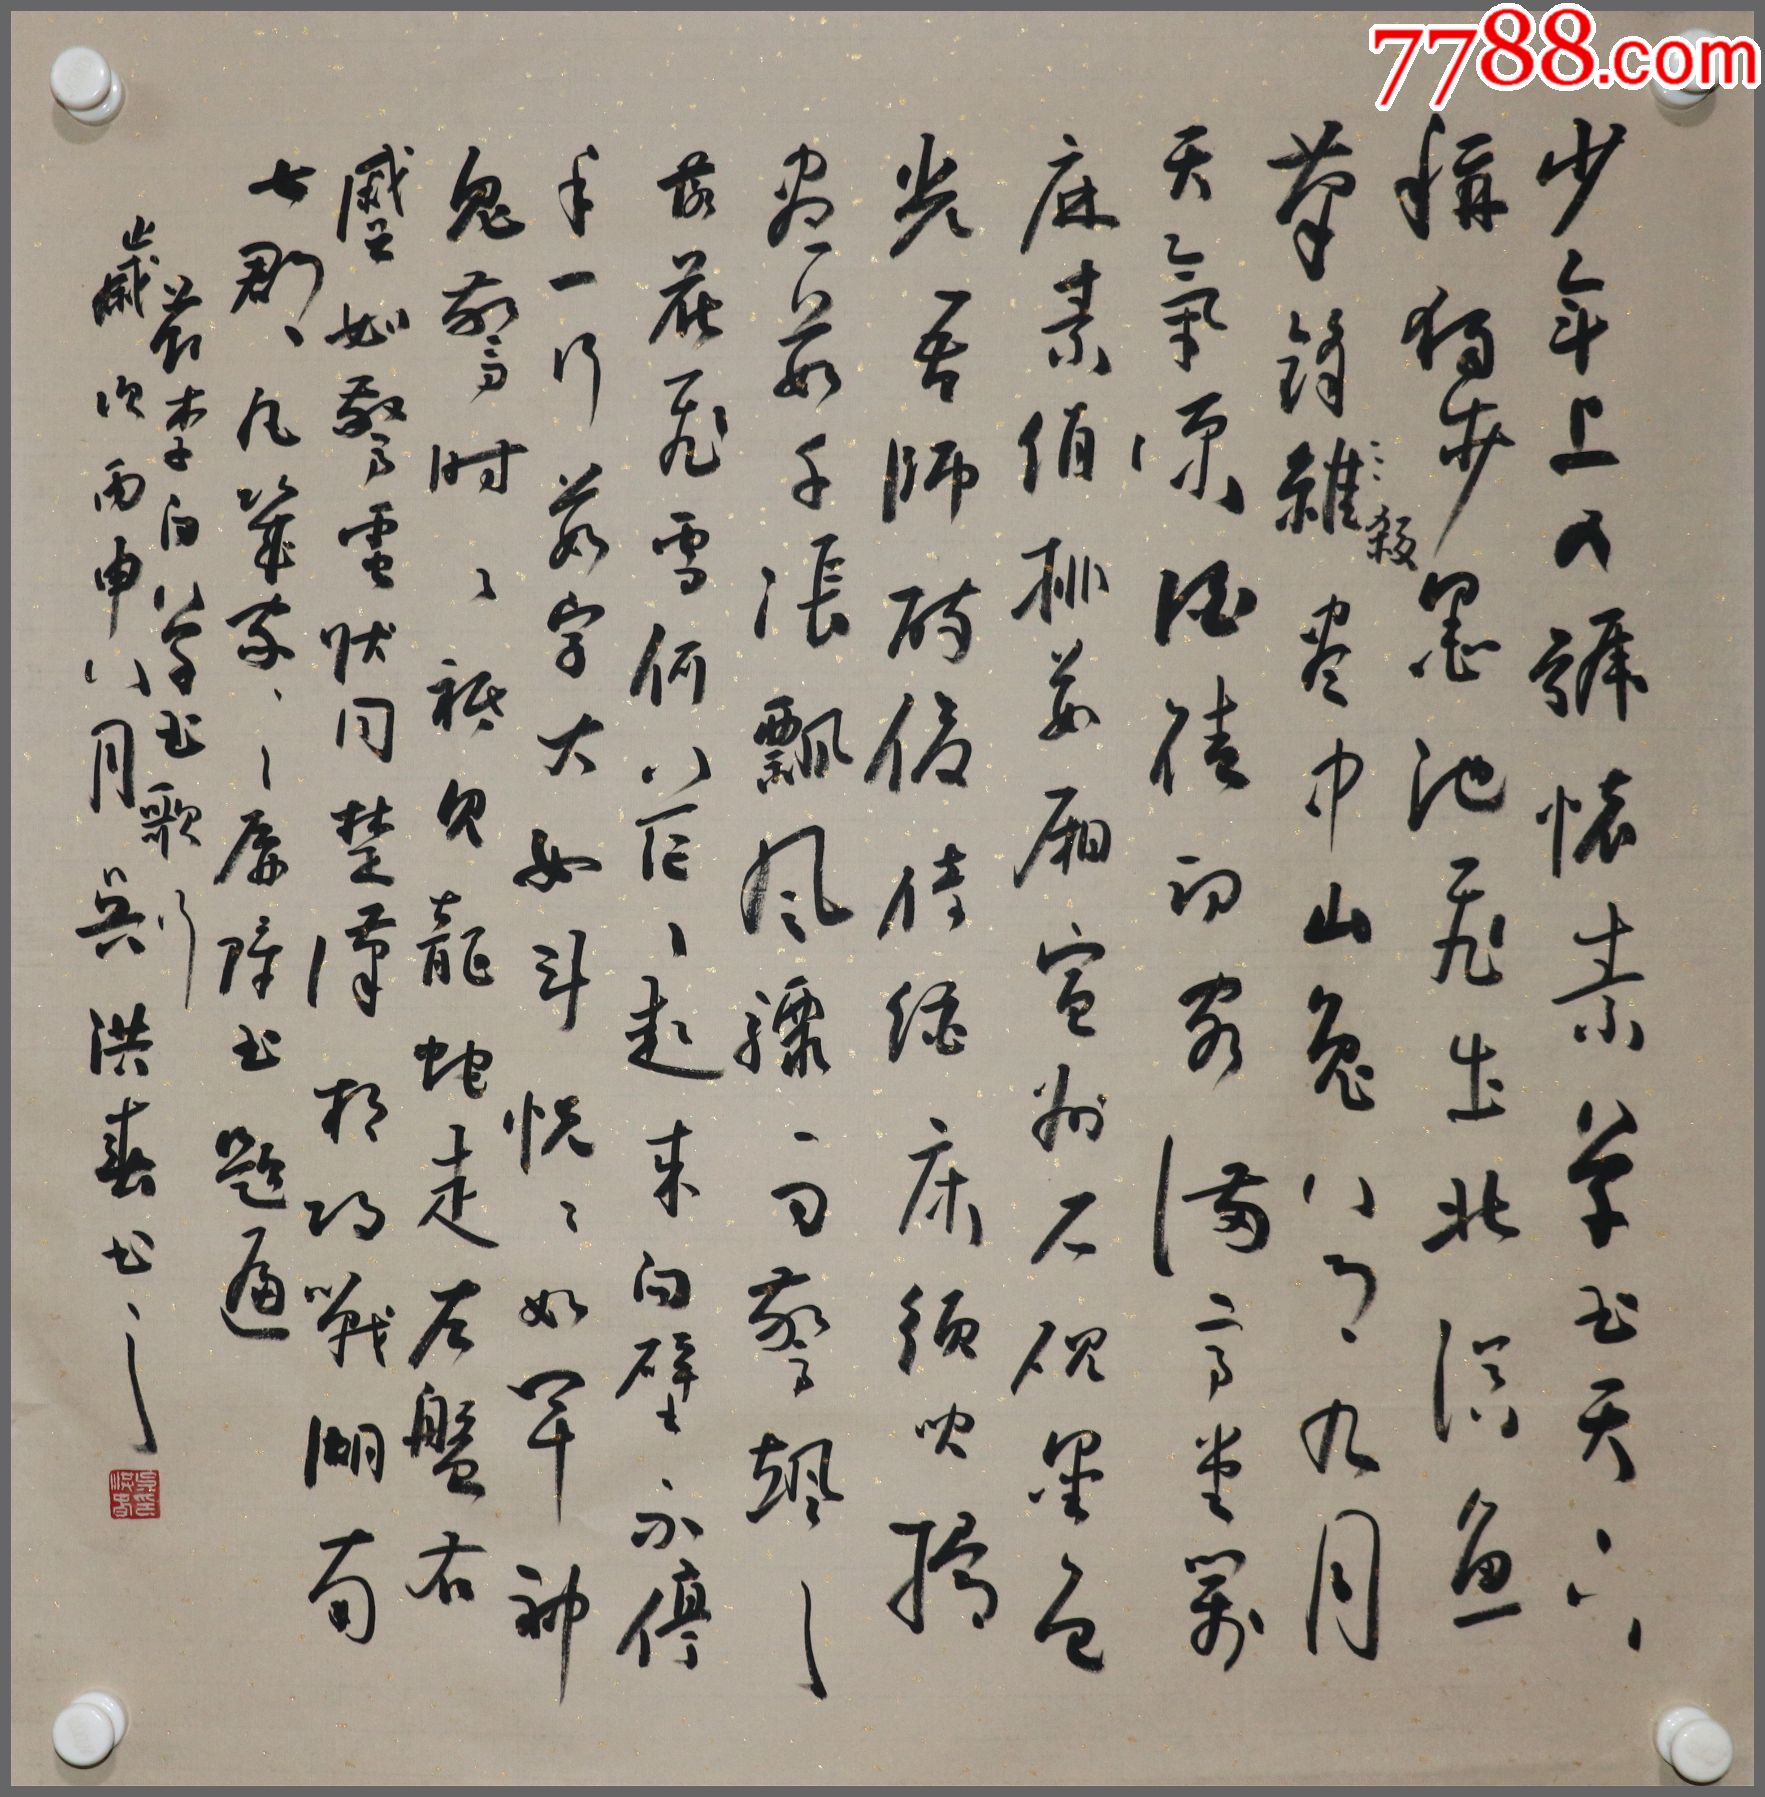 少年上人號懷素草書天下
稱獨步墨池飛出北溟魚
筆鋒雜殺盡中山兔八月九月
天氣涼酒徒詞客滿高堂箋
麻素絹排數廂宣州石硯墨色
光吾師醉後倚繩床須臾掃
盡數千張飄風驟雨驚颯颯
落花飛雪何茫茫起來向壁不停
手一行數字大如斗怳怳如聞神
鬼驚時時祇見龍蛇走左盤右
蹙如驚電狀同楚漢相攻戰湖南
七郡凡幾家家家屏障書題遍
李白草書歌行
歲次丙申八月吳洪春書之
7788.com